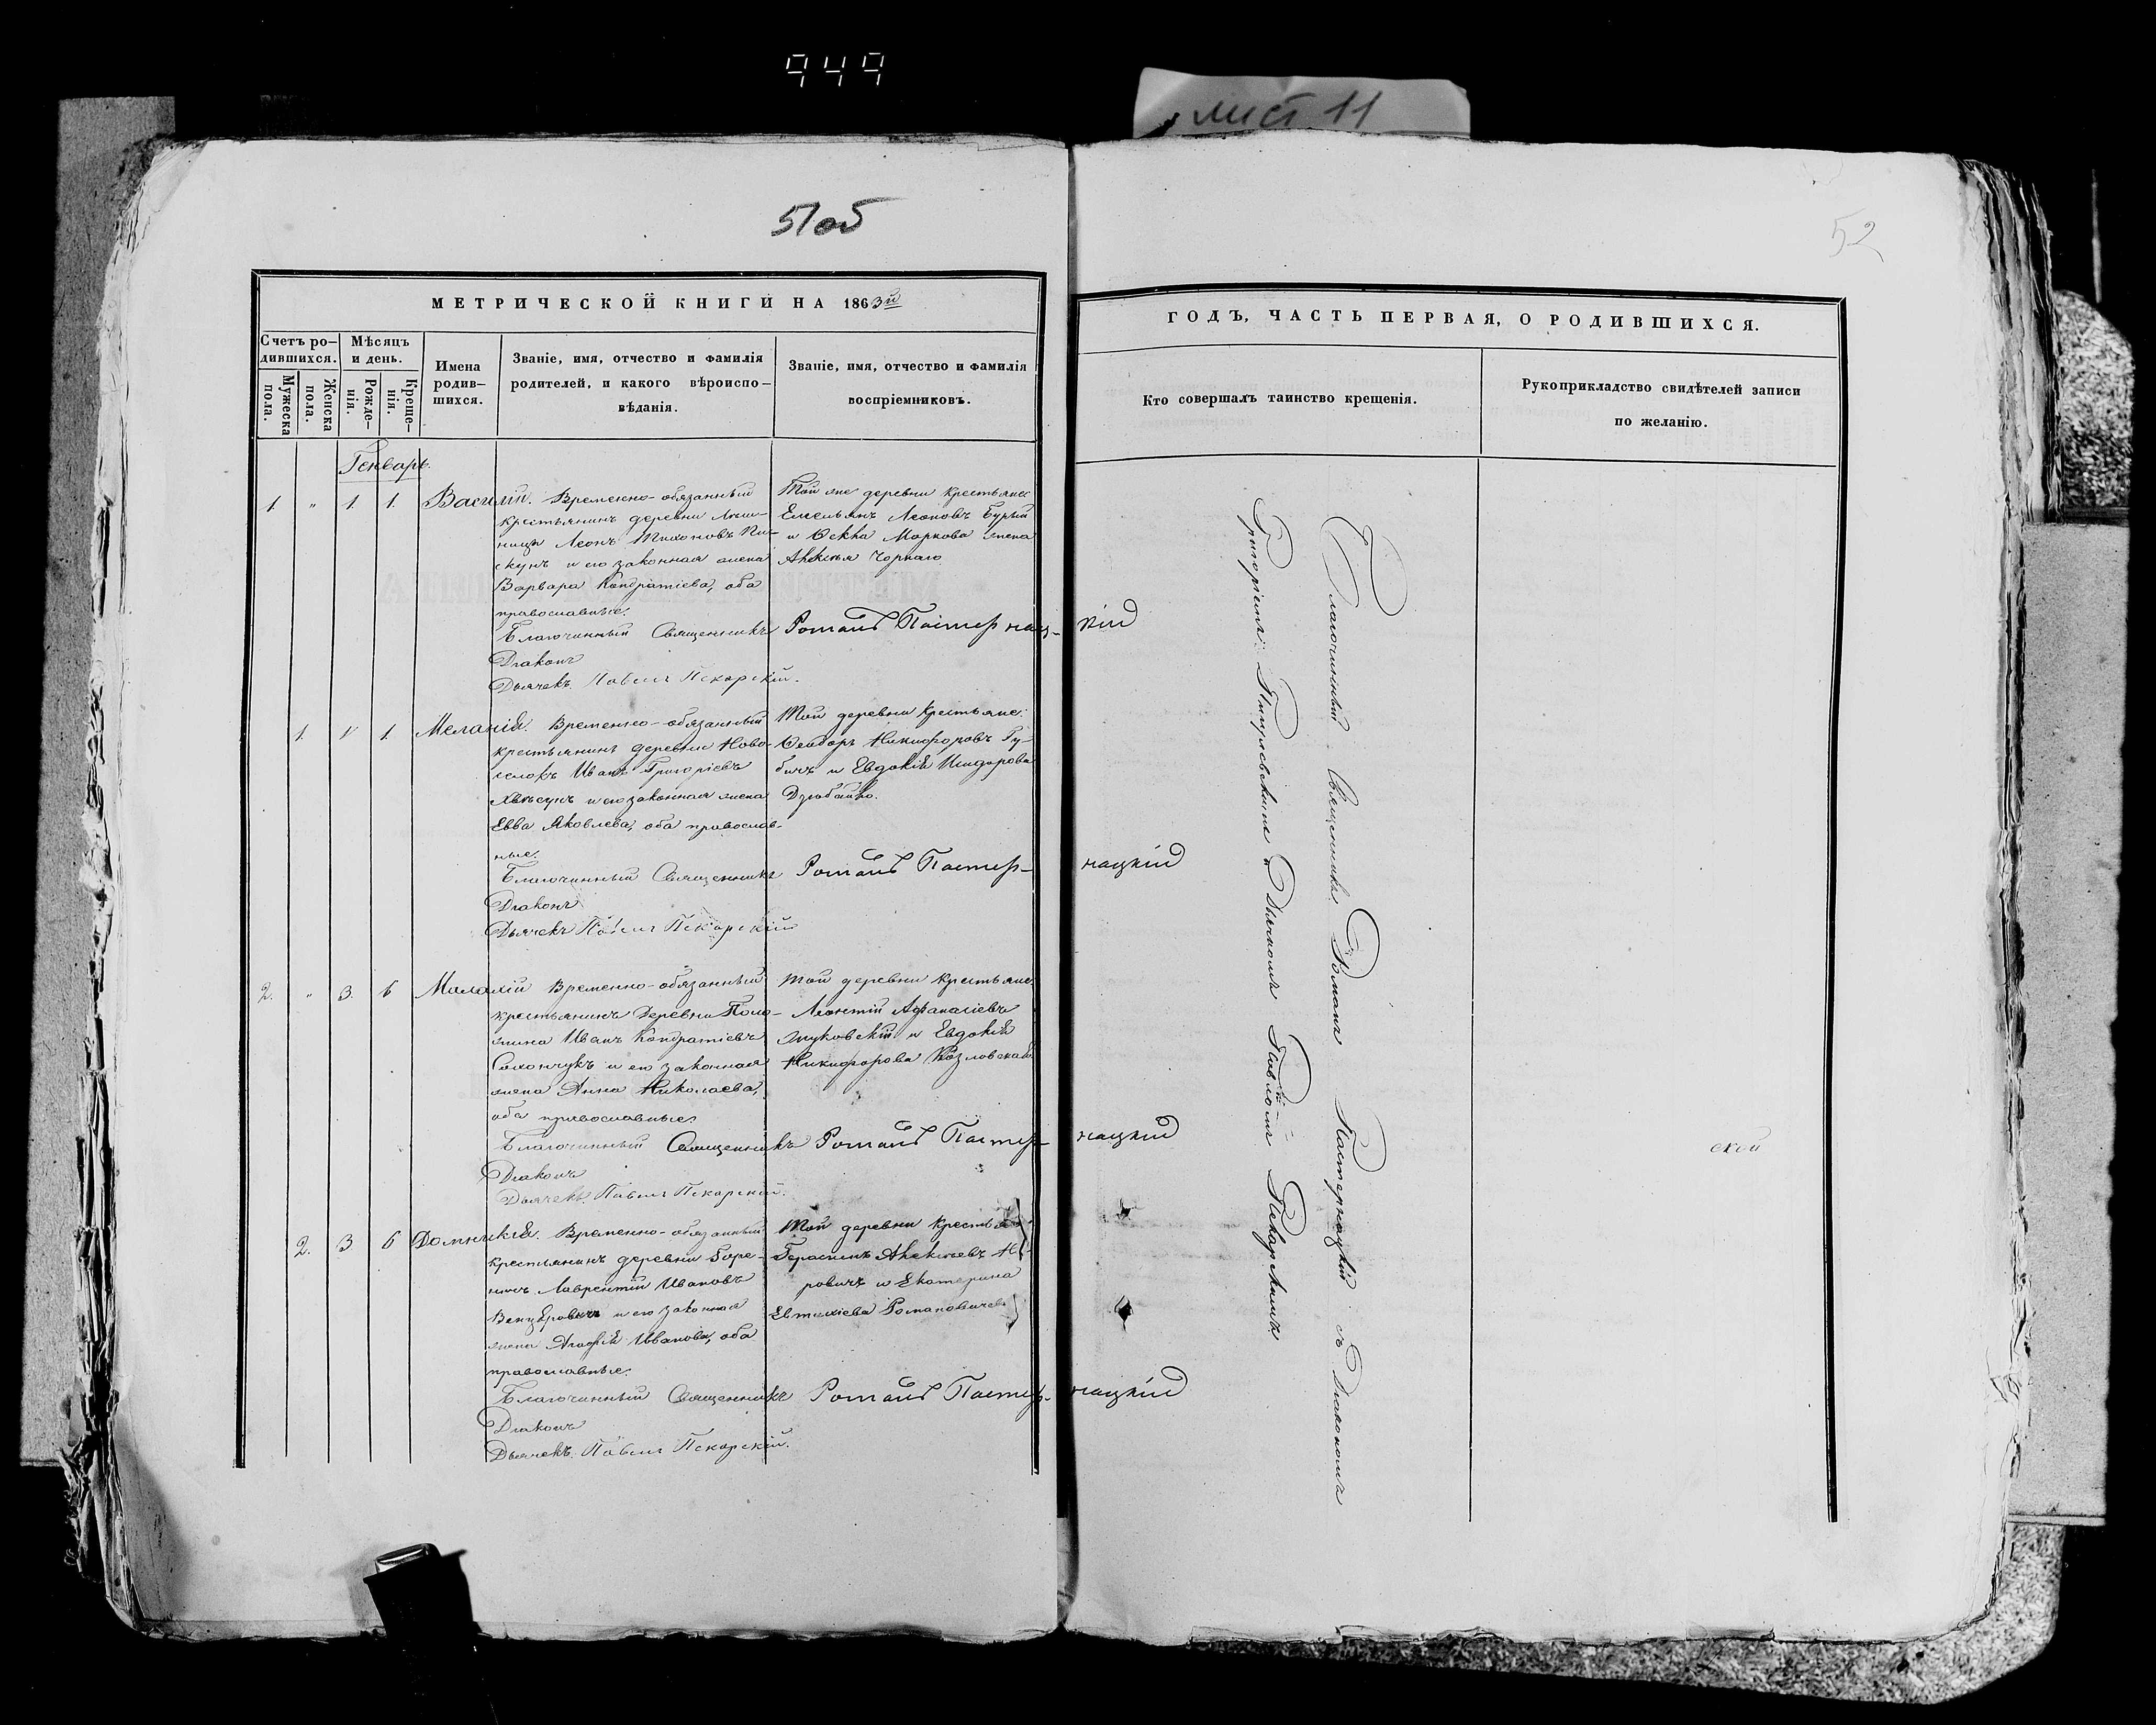 949
лист 11
51об
52
МЕТРИЧЕСКОЙ КНИГИ НА 1863й
ГОДЪ, ЧАСТЬ ПЕРВАЯ, О РОДИВШИХСЯ.
Счетъ ро-
дившихся.
Мужеска
пола.
Женска
пола.
Мѣсяцъ
и день.
Рожде-
нія.
Креще-
нія.
Имена
родив-
шихся.
Званіе, имя, отчество и фамилія
родителей, и какого вѣроиспо-
вѣданія.
Званіе, имя, отчество и фамилія
воспріемниковъ.
Кто совершалъ таинство крещенія.
Рукоприкладство свидѣтелей записи
по желанію.
Генварь.
1. " 1. 1. Василій.
Временно-обязанный
крестьянинъ деревни
Леонъ Тихоновъ Пи-
скунъ и его законная жена
Варвара Кондратіева, оба
православные.
Той же деревни крестьяне
Емельянъ Леоновъ Бурый
и Ѳекла Маркова жена
Алексѣя Чорнаго
Благочинный Священникъ Романъ Пастернацкій
Діаконъ
Дьячекъ Павелъ Пекарскій.
1. 1 1. Меланія.
Временно-обязанный
крестьянинъ деревни Ново-
селокъ Иванъ Григоріевъ
и его законная жена
Евва Яковлева, оба православ-
ные.
Той деревни крестьяне
Ѳеодоръ Никифоровъ Гу-
бичъ и Евдокія Исидорова
Дзюбайло.
Благочинный Священникъ Романъ Пастернацкій
Діаконъ
Дьячекъ Павелъ Пекарскій
2. " 3. 6 Малахій
Временно-обязанный
крестьянинъ деревни Поло-
жина Иванъ Кондратіевъ
Сахончукъ и его законная
жена Анна Николаева,
оба православные.
Той деревни крестьяне
Леонтій Афанасіевъ
Жуковскій и Евдокія
Никифорова Козловская
Благочинный Священникъ Романъ Пастернацкій
Діаконъ
Дьячекъ Павелъ Пекарскій.
2. 3 6 Домникія.
Временно-обязанный
крестьянинъ деревни Горе-
ничъ Лаврентій Ивановъ
и его законная
жена Агафія Иванова, оба
православные.
Той деревни крестьяне
Герасимъ Алексѣевъ
ровичъ и Екатерина
Евтихіева Романовичева
Благочинный Священникъ Романъ Пастернацкій
Діаконъ
Дьячекъ Павелъ Пекарскій.
Благочинный Священникъ Романъ Пастернацкій съ Діакономъ
Григоріемъ и Дьячкомъ Павломъ Пекарскимъ
ской